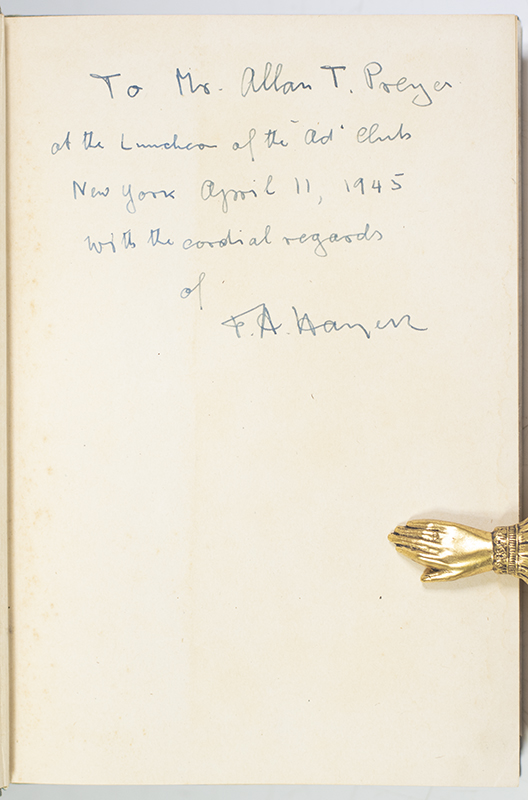 To Mr. Allan T. Preyer
at the Luncheon of the "Ad" Club
New York April 11, 1945
with the cordial regards
of
F. A. Hayek